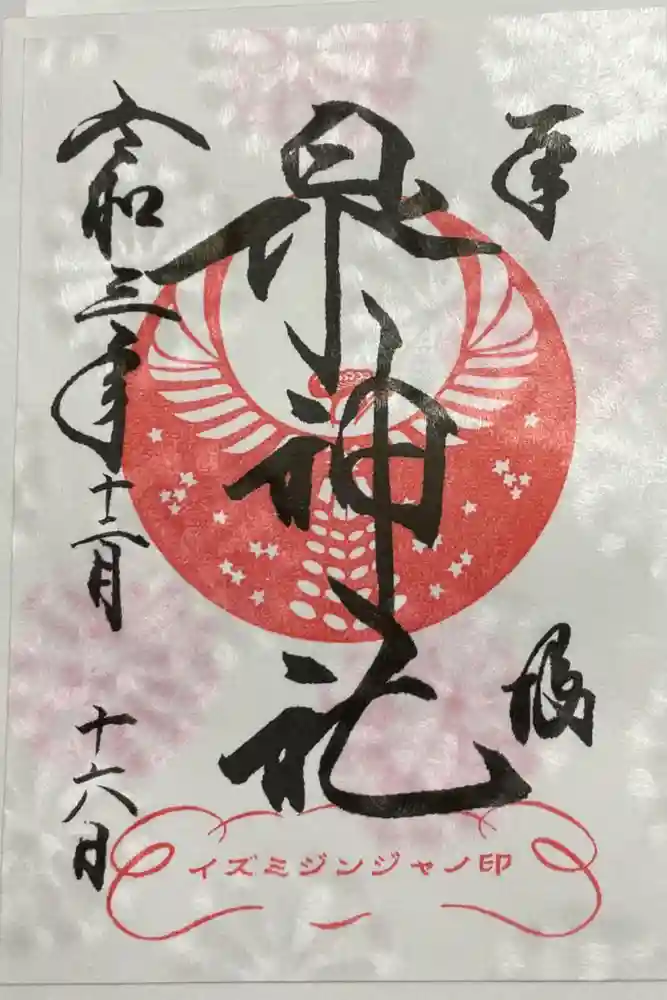 泉神社
令和三年十二月十六日
イズミジンジャノ印